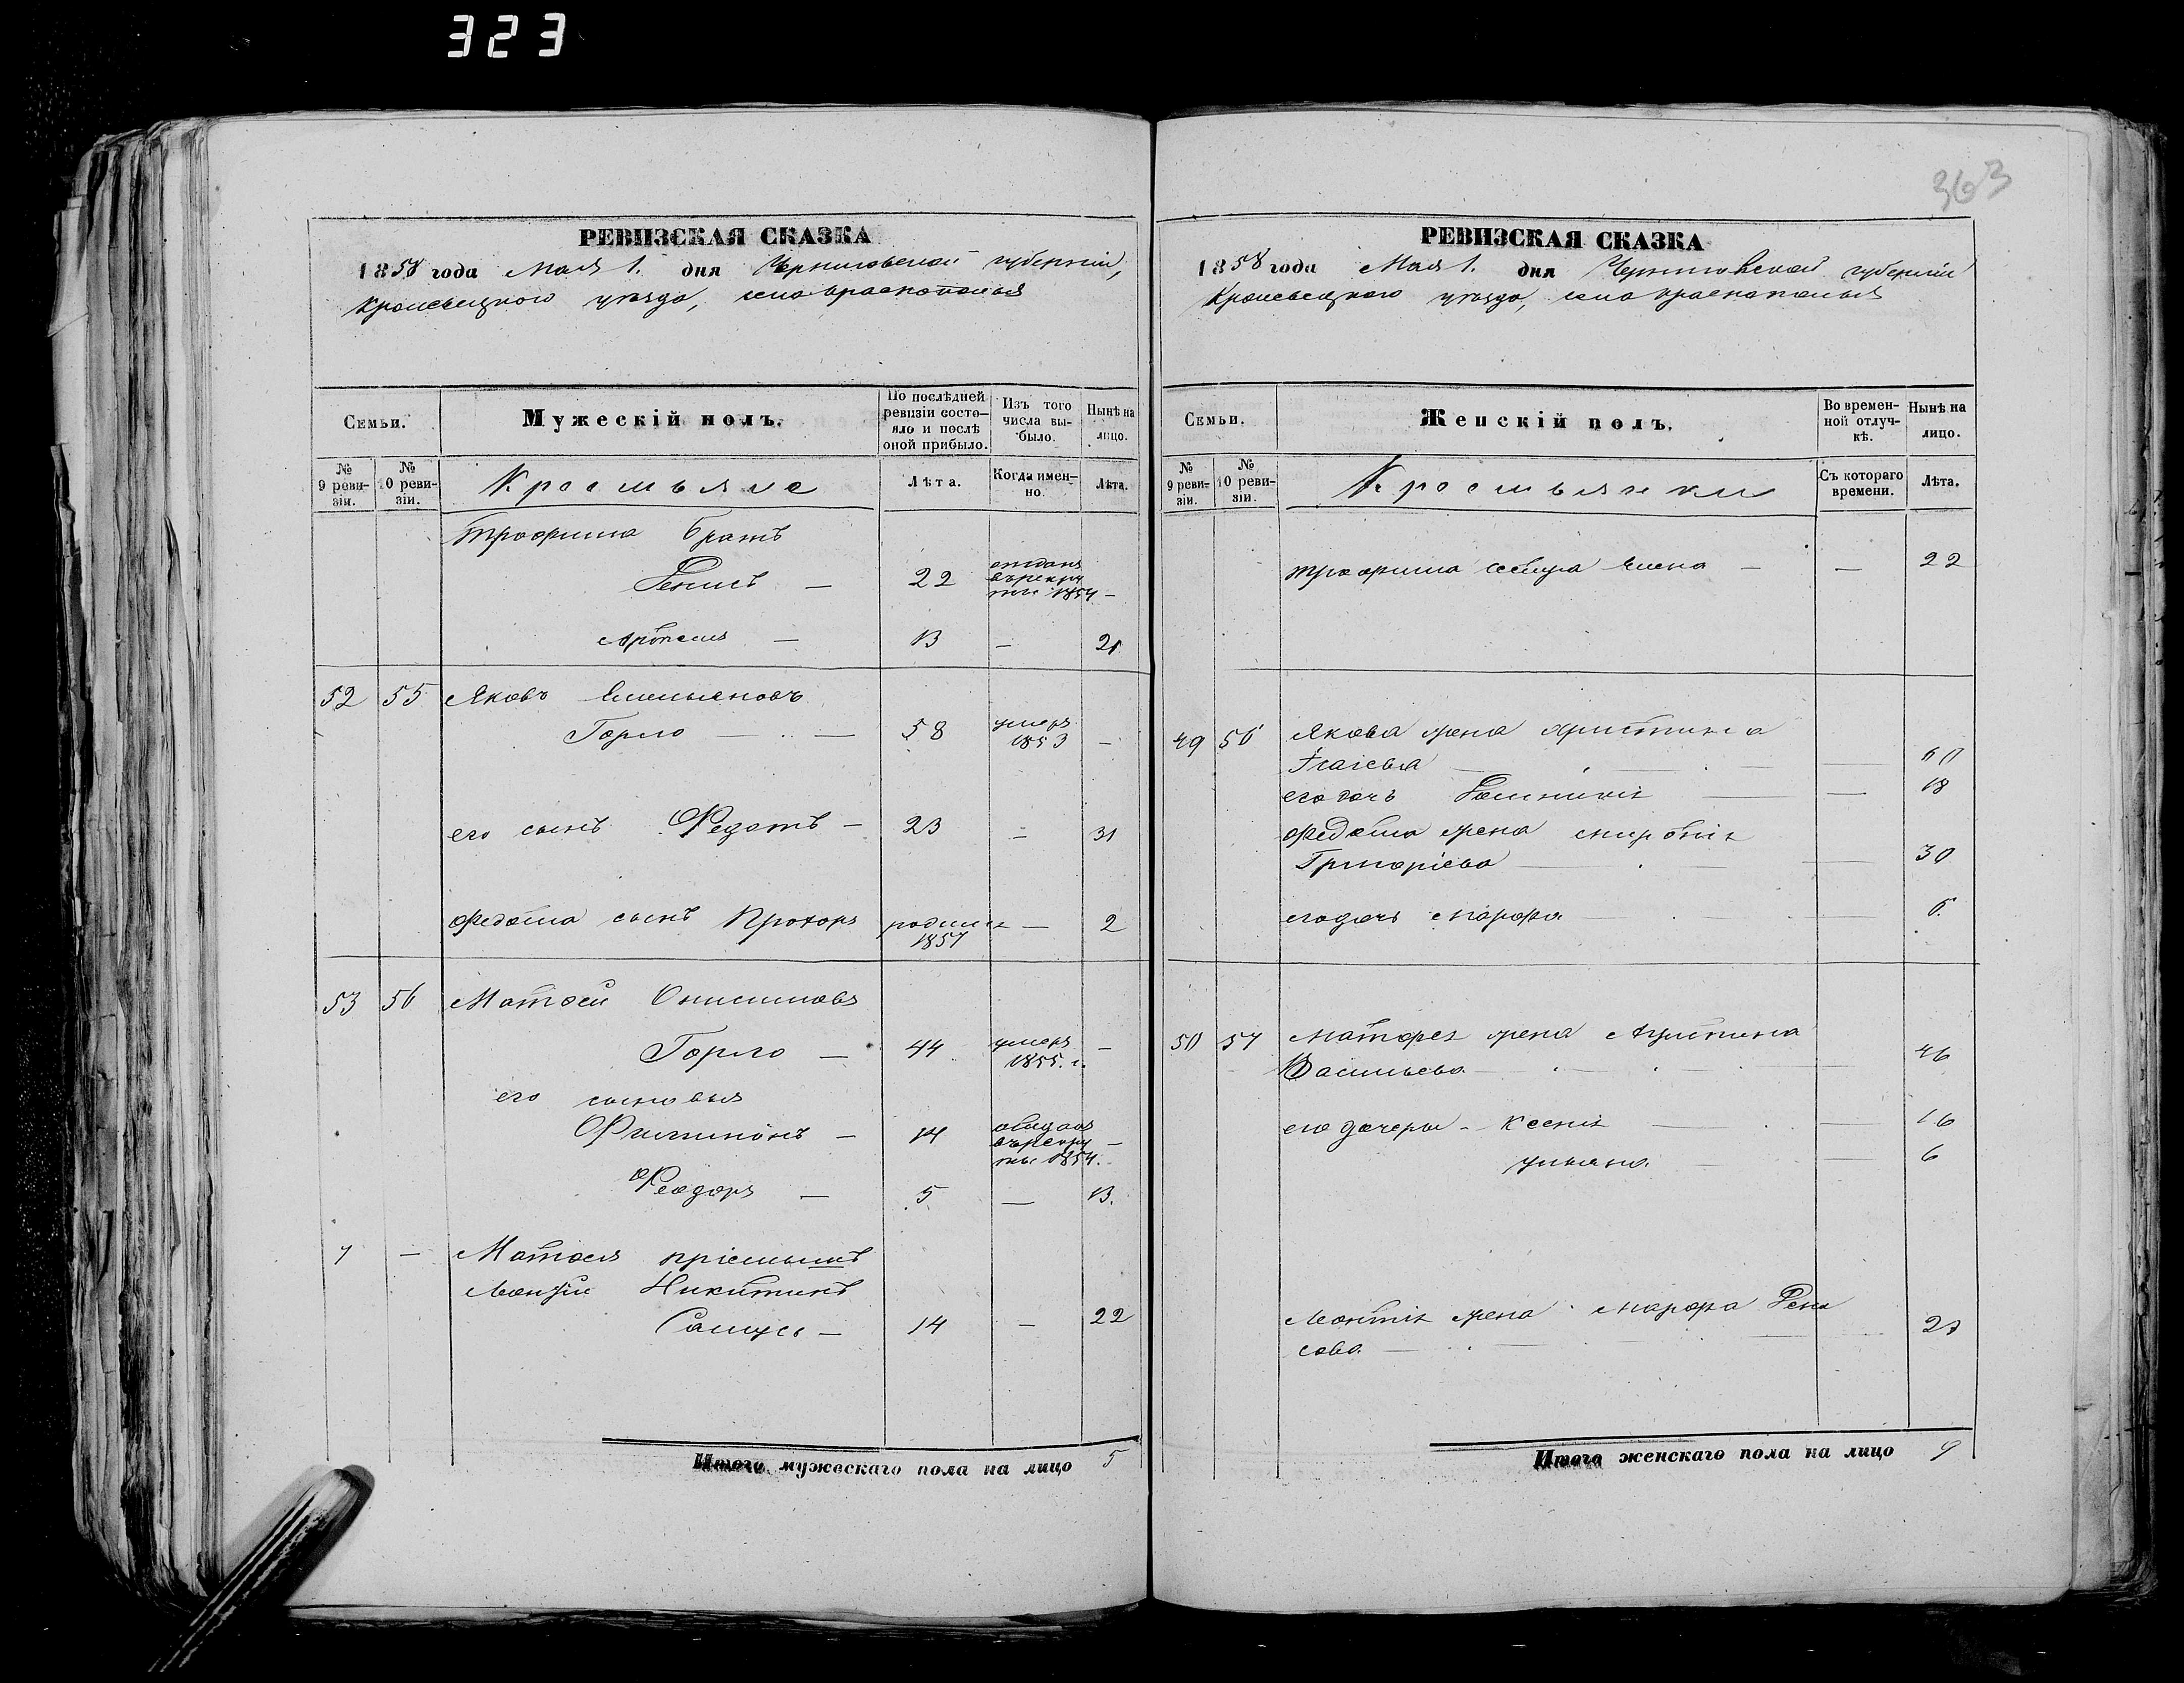 323
РЕВИЗСКАЯ СКАЗКА
1858 года Мая 1. дня Черниговской губерніи,
Кролевецкого уезда, села Краснополья
Семьи.
Мужескій полъ.
По послѣдней ревизіи состо-
яло и послѣ оной прибыло.
Изъ того числа вы-
было.
Нынѣ на лицо.
№ 9 реви-
зіи.
№ 10 реви-
зіи.
Крестьяне
Лѣта.
Когда имен-
но.
Лѣта.
Трофима братъ
Денисъ — 22 отданъ въ рекру
ты 1854 —
Артемъ — 13 — 21
52 55 Яковъ Емельяновъ
Горло — 58 умеръ 1853 —
его сынъ Федотъ — 23 — 31
Федота сынъ Прохоръ родился 1857 — 2
53 56 Матвей Онисимовъ
Горло — 44 умеръ 1855. г. —
его сыновья
Филимонъ — 14 отданъ въ рекру
ты 1854. —
Феодоръ — 5 — 13.
7 — Матвея пріемышъ
Никитинъ
Самусь — 14 — 22
Итого мужескаго пола на лицо 5
363
РЕВИЗСКАЯ СКАЗКА
1858 года Мая 1. дня Черниговской губерніи
Кролевецкаго уезда, села Краснополья
Семьи.
Женскій полъ.
Во времен-
ной отлуч-
кѣ.
Нынѣ на лицо.
№ 9 реви-
зіи.
№ 10 реви-
зіи.
Крестьянки
Съ котораго времени.
Лѣта.
Трофима сестра Елена — — 22
49 56 Якова жена Христина
Исаіева — — 60
его дочь — — 18
Федота жена
Григоріева — — 30
его дочь Марфа — 6.
50 57 Матфея жена Агустина
Васильева — — 46
его дочери - Ксенія — — 16
Ульяна — — 6
Леонтія жена Марфа Дени
сова — —
Итого женскаго пола на лицо 9